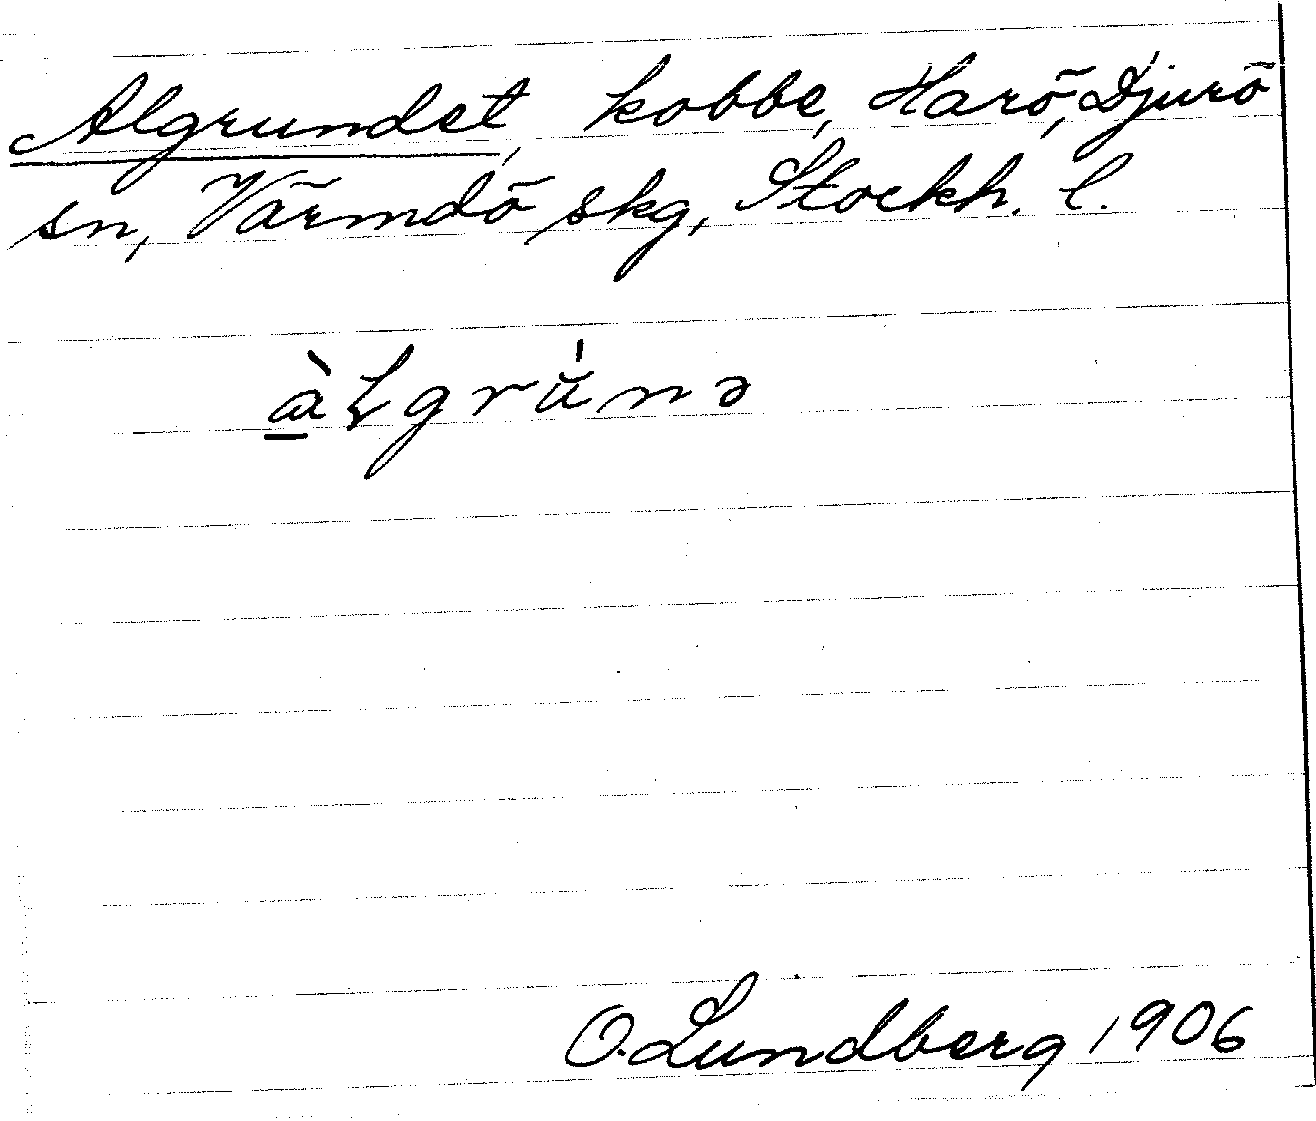 Algrundet, kobbe, Harö, Djurö
sn, Värmdö skg, Stockh. l.
àłgrŭ̍nə
O. Lundberg 1906